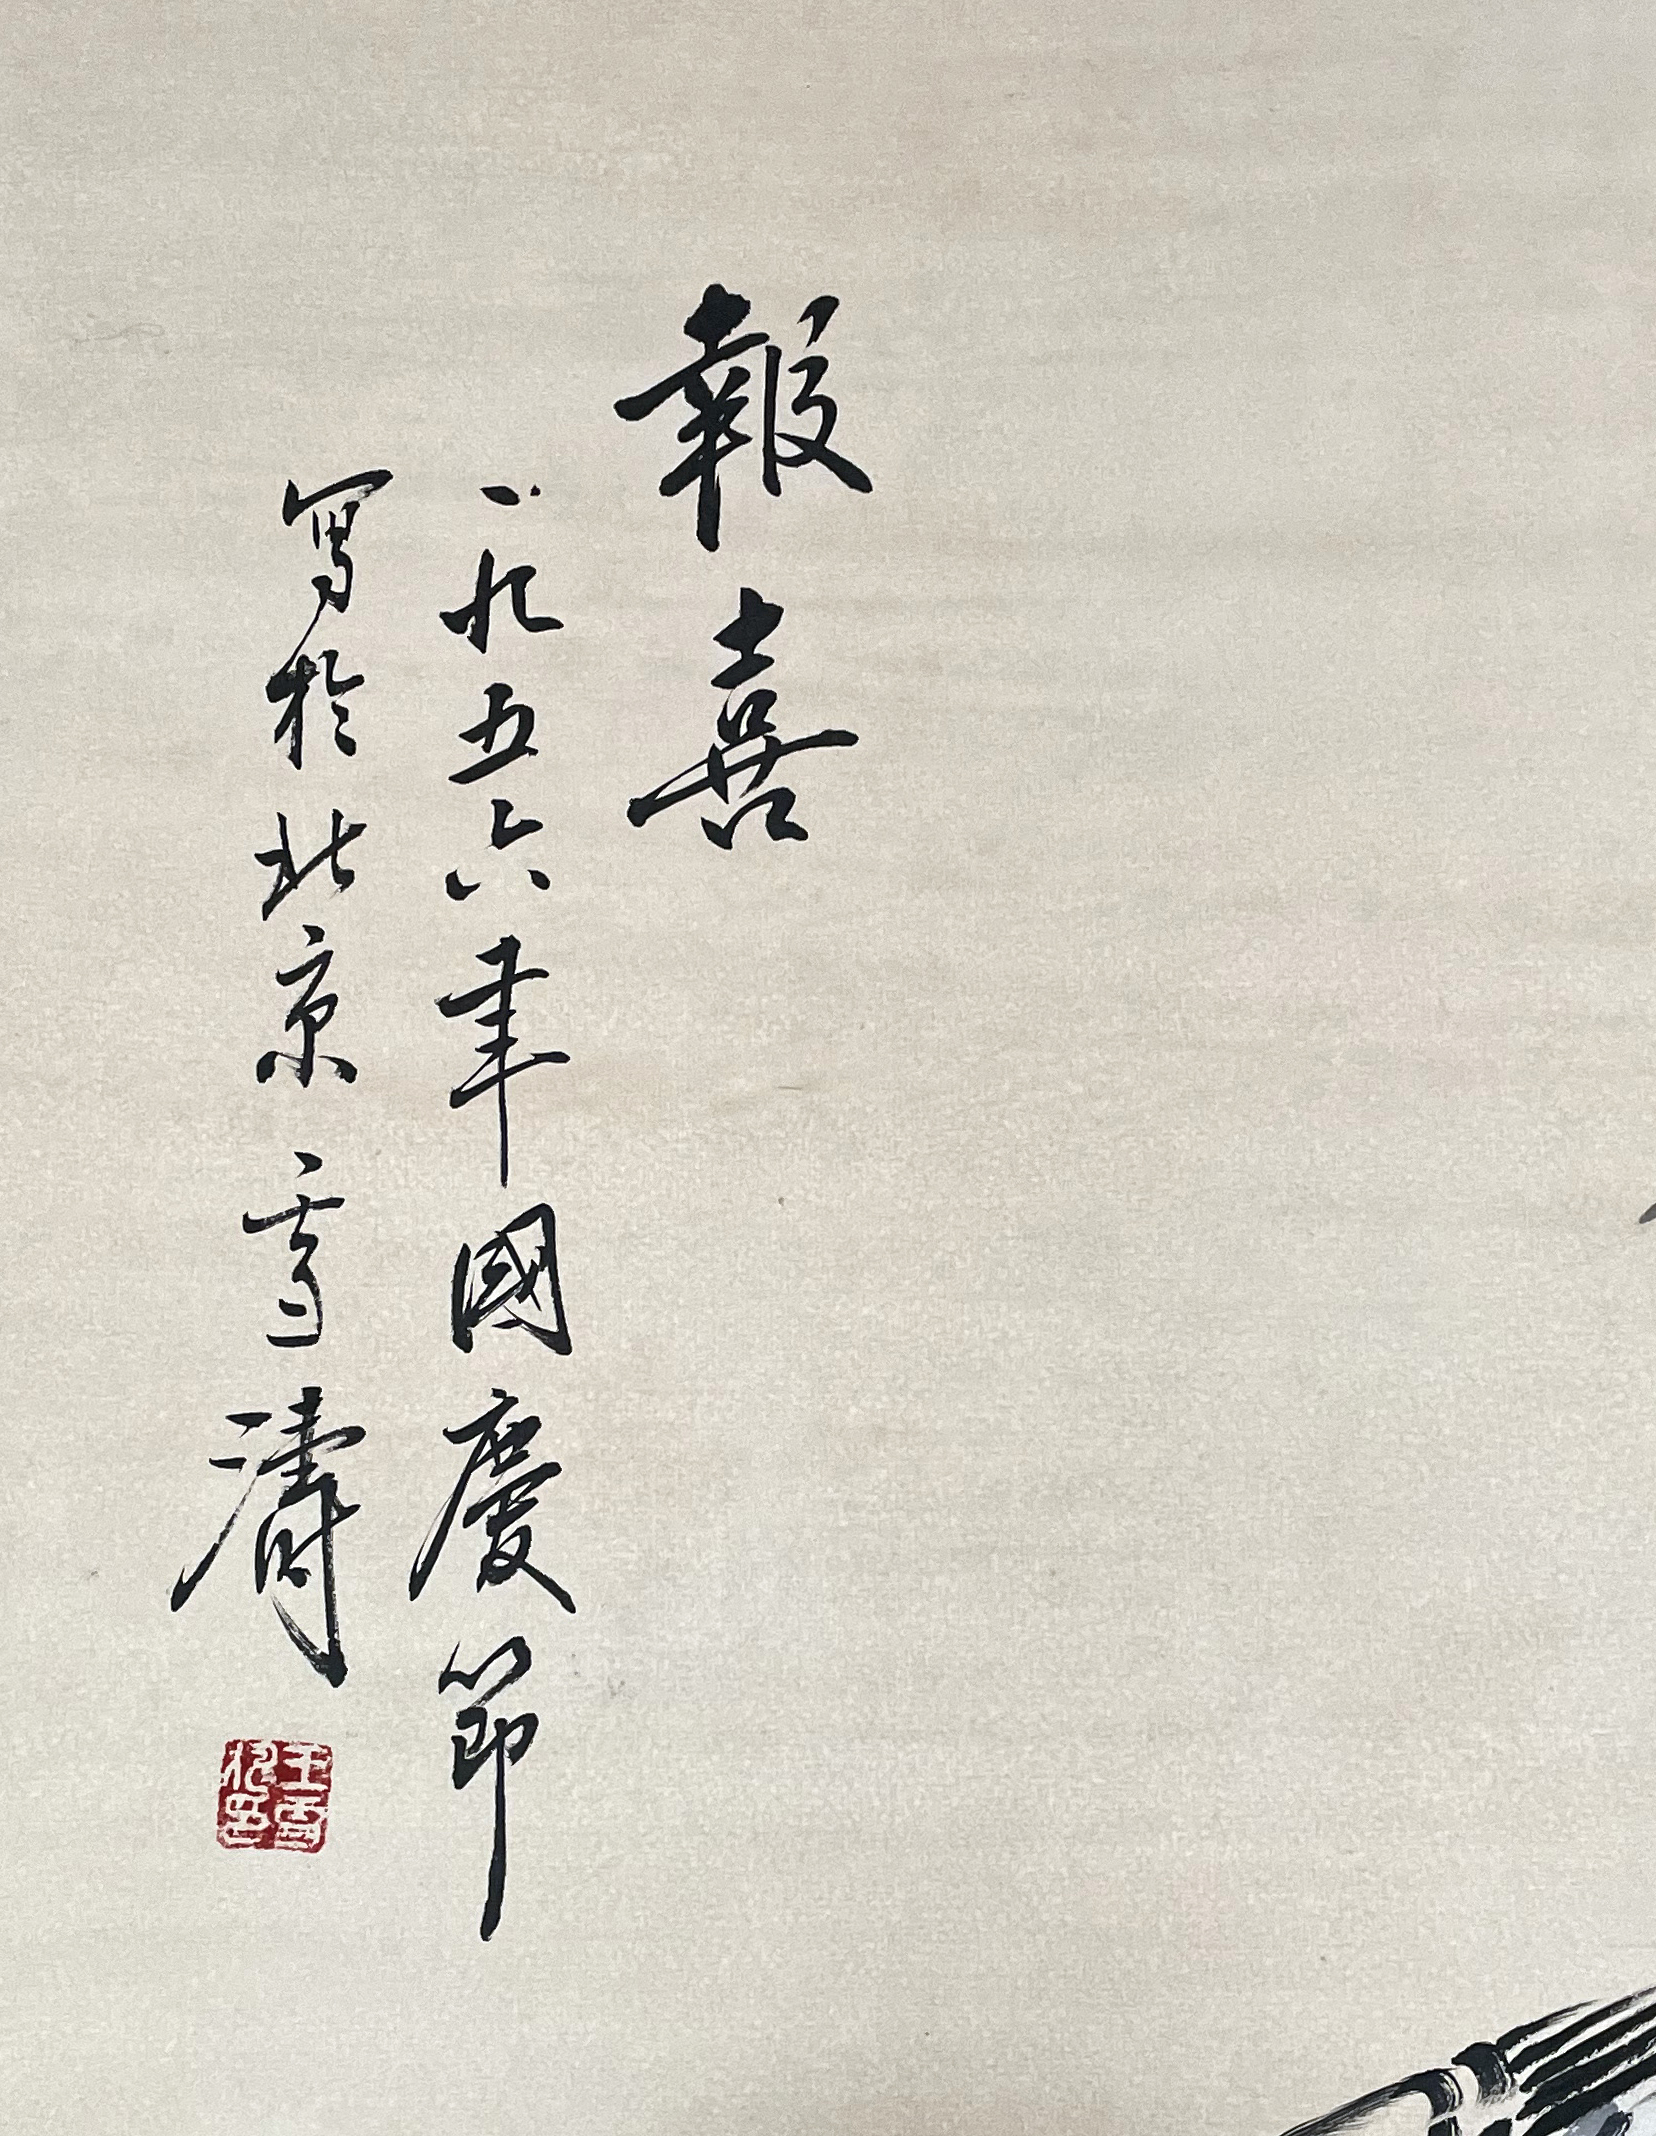 報喜
一九五六年國慶節
寫於北京雪濤
王雪濤印